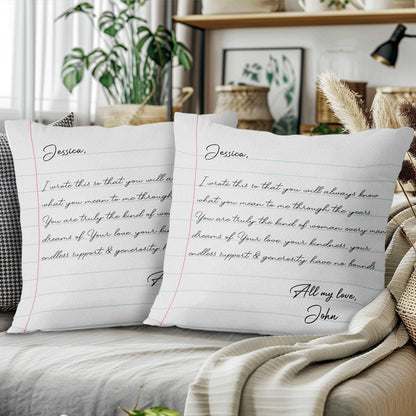 Jessica,
I wrote this so that you will a
what you mean to me through
You are truly the kind of woman
dreams of Your love, your kindn
endless support & generosity h
A
Jessica,
I wrote this so that you will always know
what you mean to me through the years
You are truly the kind of woman every man
dreams of Your love, your kindness, your
endless support & generosity have no bounds
All my love,
John